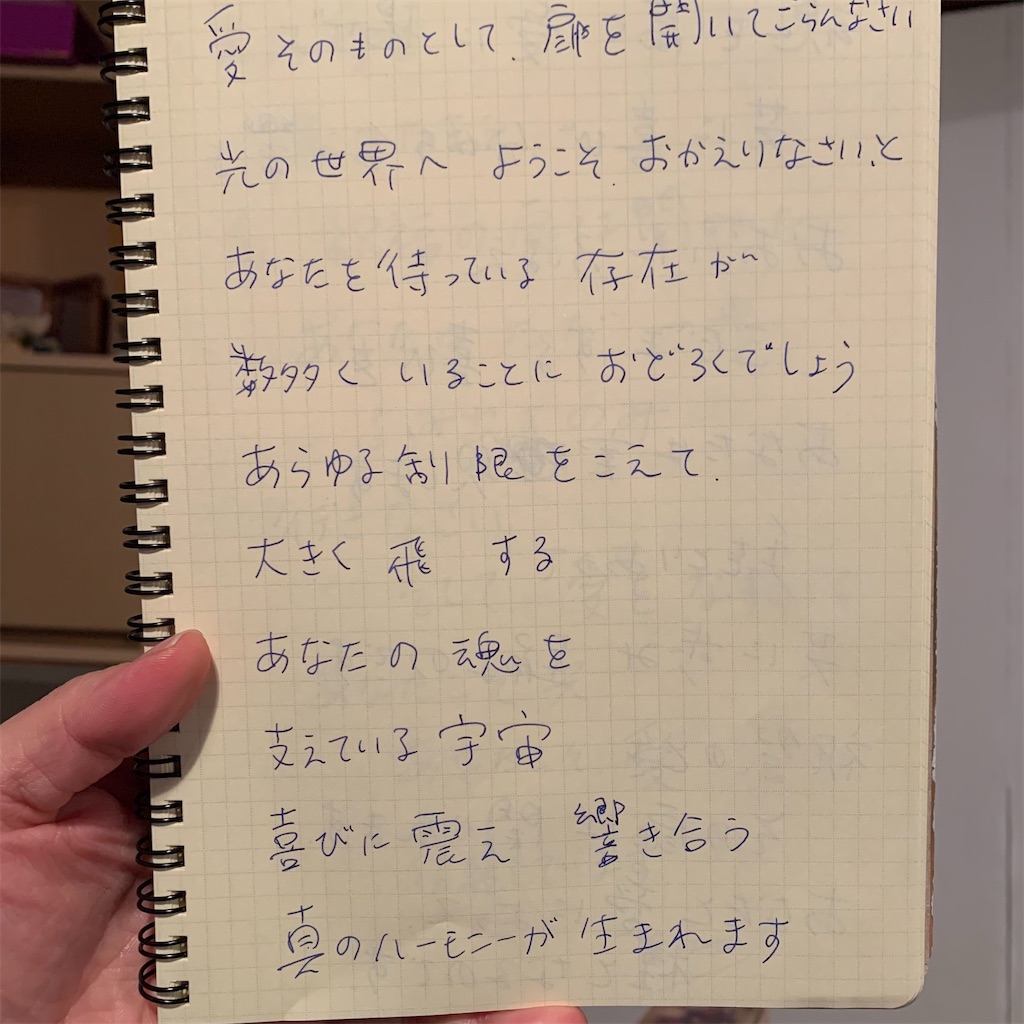 愛そのものとして、扉を開いてごらんなさい
光の世界へ ようこそ、おかえりなさい、と
あなたを待っている 存在が
数多く いることに おどろくでしょう
あらゆる制限をこえて、
大きく 飛 する
あなたの 魂を
支えている 宇宙
喜びに震え 響き合う
真のハーモニーが 生まれます